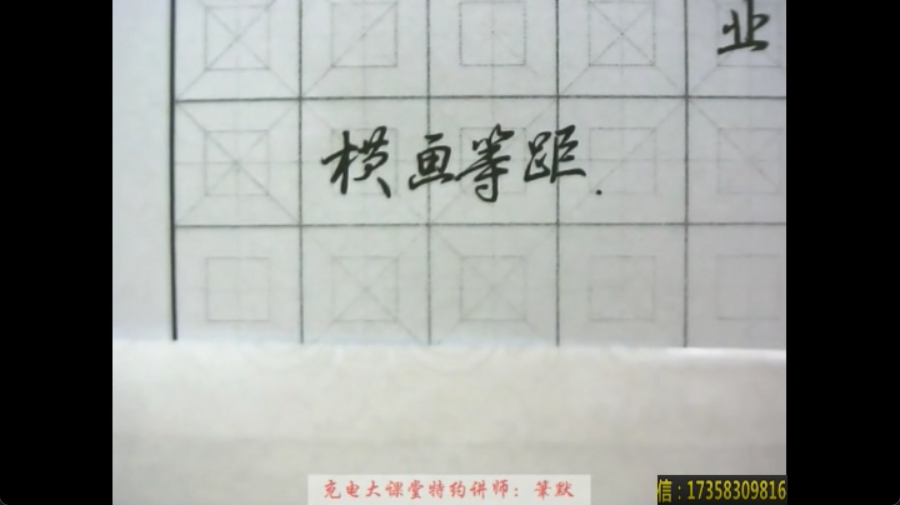 业
横画等距.
充电大课堂特约讲师：笔默
信：17358309816